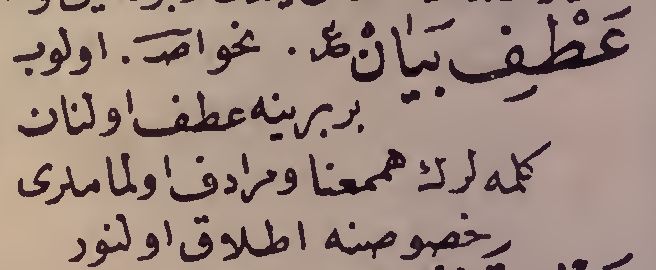 عَطْفِ بَيَانْ ع. نحواصـ. اولوب
بربرينه عطف اولنان
كلمه لرك هممعنا ومرادف اولمامەلرى
خصوصنه اطلاق اولنور